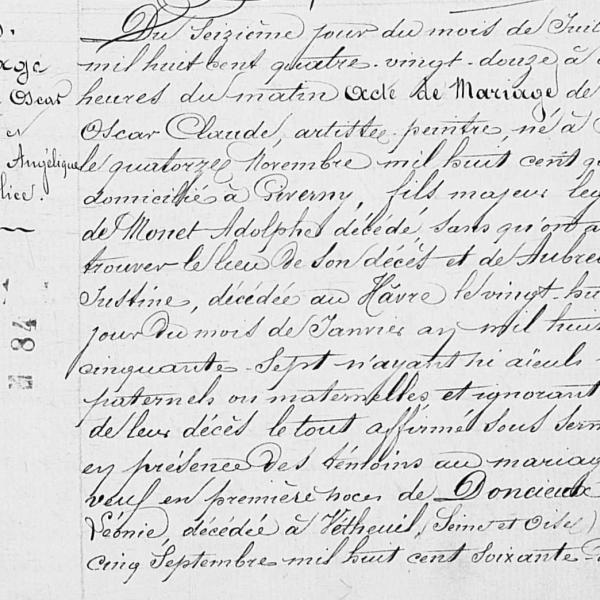 age
Oscar
et
Angélique
lice.
M 84
Du Seizième jour du mois de Juil
mil huit cent quatre-vingt-douze à
heures du matin Acte de Mariage de
Oscar Claude, artiste peintre, né à
le quatorze Novembre mil huit cent
domicilié à Giverny, fils majeur lég
de Monet Adolphe décédé, sans qu'on a
trouver le lieu de son décès et de Aubré
Justine, décédée au Hâvre le vingt-hu
jour du mois de Janvier an mil huit
cinquante-Sept n'ayant ni aïeuls
paternels ou maternelles et ignorant
de leur décès le tout affirmé sous serm
en présence des témoins au mariag
veuf en première noces de Doncieux
Léonie, décédée à Vétheuil, (Seine et Oise)
cinq Septembre mil huit cent soixante-